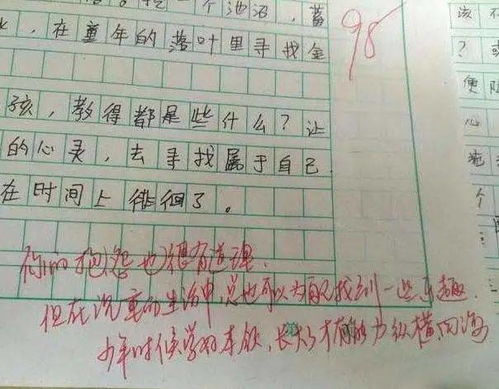 一个池沼，蓄
，在童年的落叶里寻找金
98
孩，教得都是些什么？让
的心灵，去寻找属于自己
在时间上徘徊了。
你的抱怨也很有道理。
但在沉重的生活中，总也可以为自己找到一些乐趣
少年时候学的本领，长大了才有能力纵横四海
该不
？或
便
心